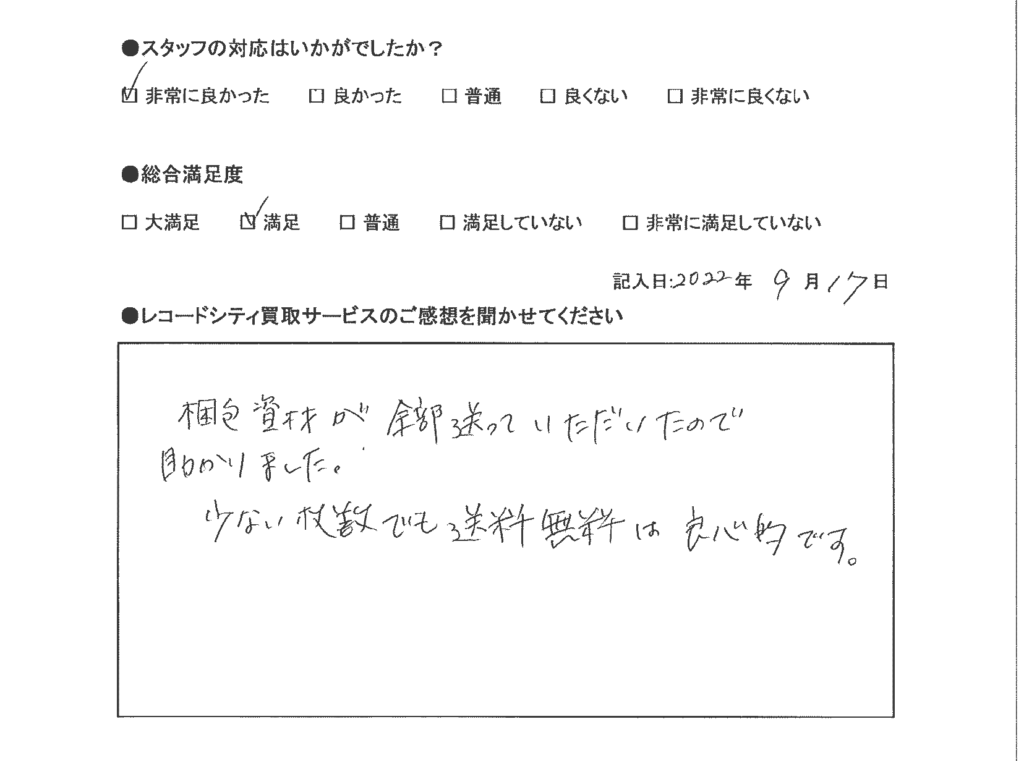 ●スタッフの対応はいかがでしたか？
☑ 非常に良かった □ 良かった □ 普通 □ 良くない □ 非常に良くない
●総合満足度
□ 大満足 ☑ 満足 □ 普通 □ 満足していない □ 非常に満足していない
記入日:2022年 9月17日
●レコードシティ買取サービスのご感想を聞かせてください
梱包資材が全部送っていただいたので
助かりました。
少ない枚数でも送料無料は良心的です。